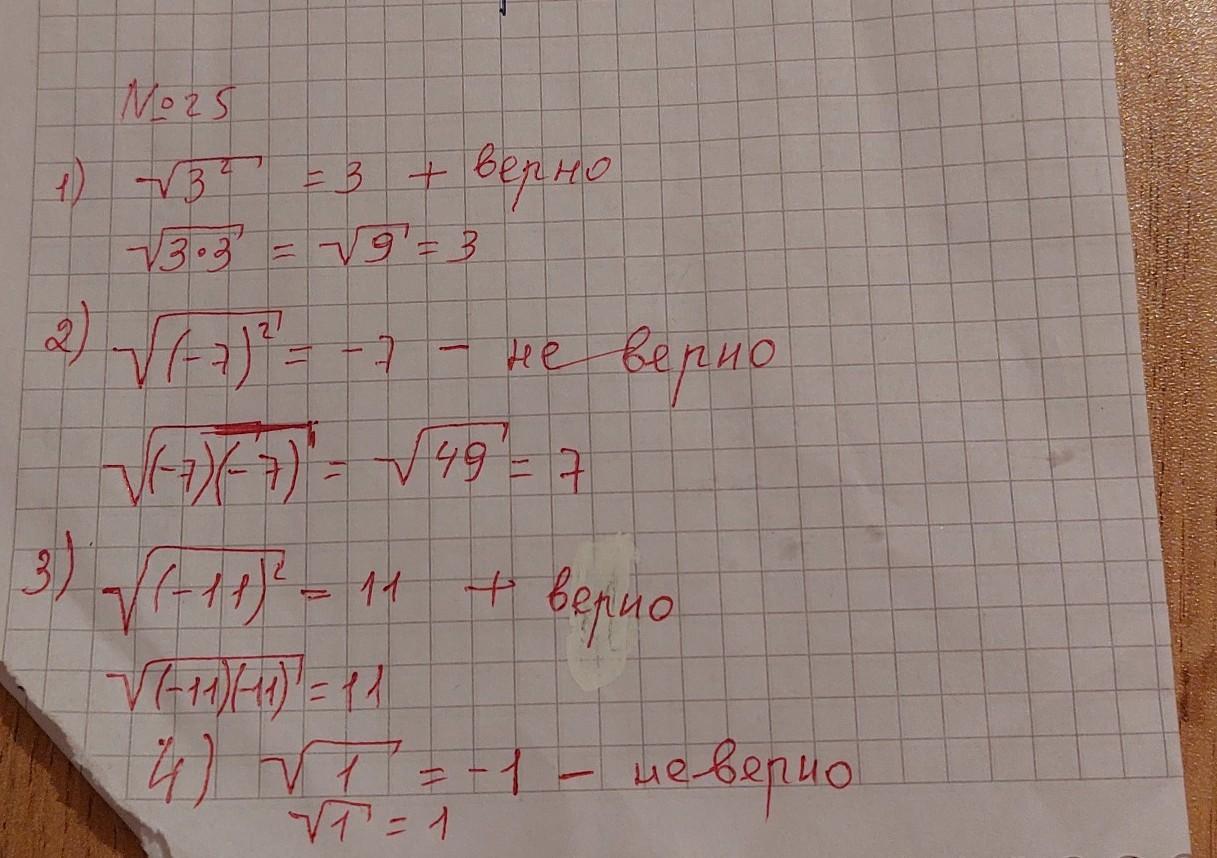 №25
1) √3² = 3 + верно
√3·3 = √9 = 3
2) √(-7)² = -7 - не верно
√(-7)(-7) = √49 = 7
3) √(-11)² = 11 + верно
√(-11)(-11) = 11
4) √1 = -1 - не верно
√1 = 1